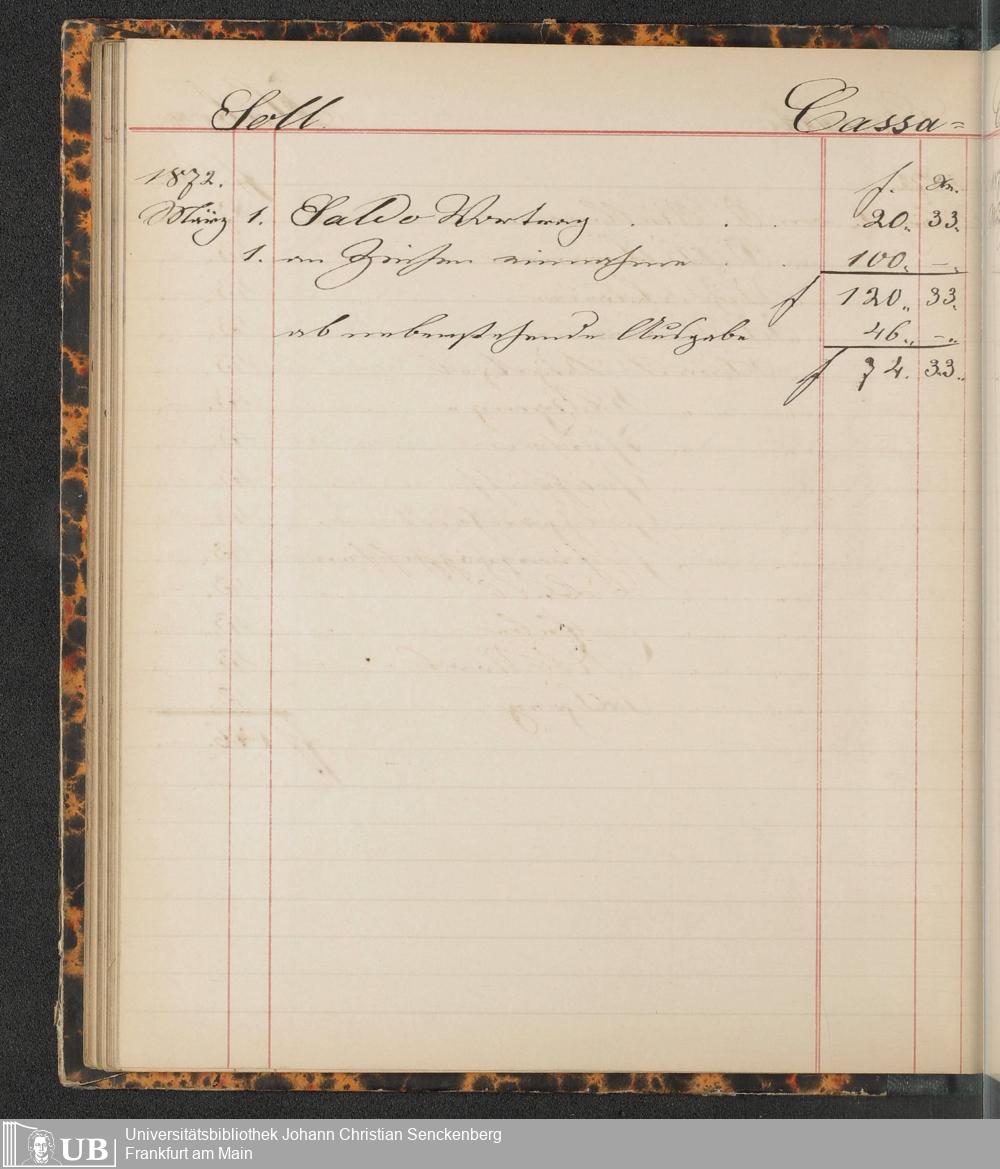 Soll. Cassa=
1872. f. Xr.
März 1. Saldo Vortrag . . . 20. 33.
1. an einnahme . . 100. -.
f 120. 33.
ab nebenstehende Ausgabe 46. -.
f 74. 33.
UB Universitätsbibliothek Johann Christian Senckenberg
Frankfurt am Main